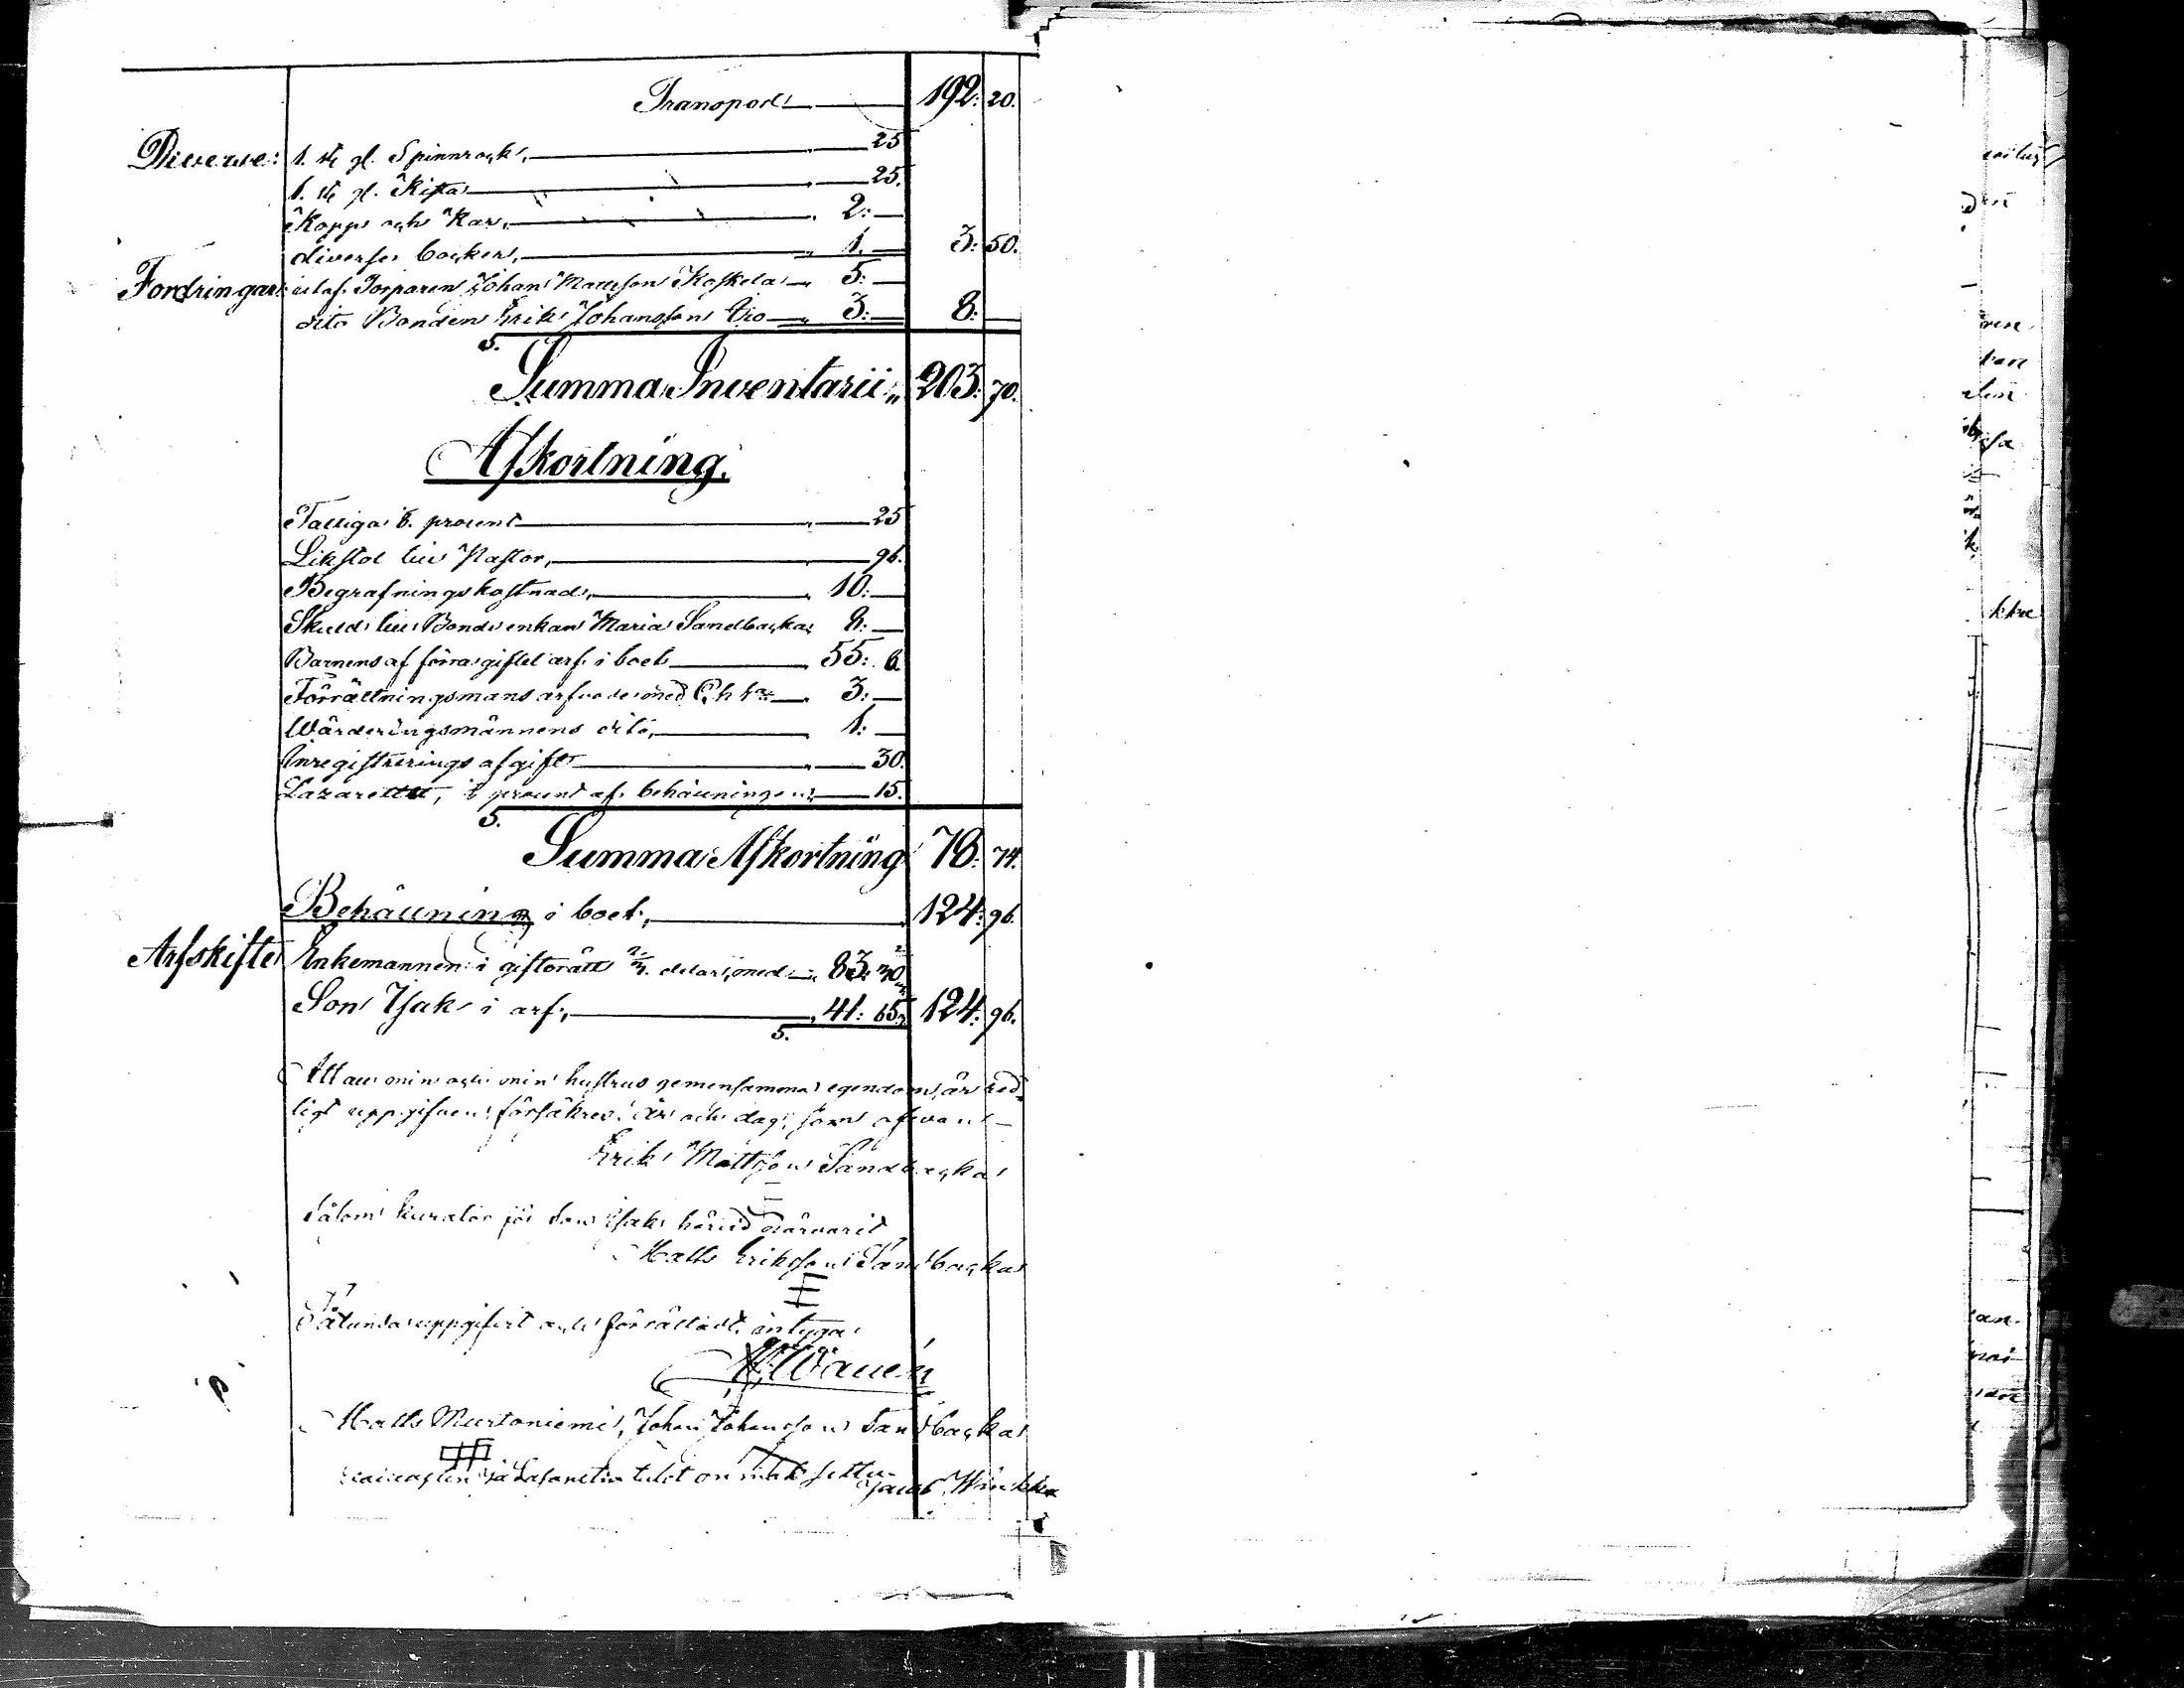 Transport 192: 20.
Diverse: 1. st. gl. Spinnrock, 25
1. st. gl. Kista 25.
Kopp och Kar, 2:
diverse böcker, 1. 3: 50.
Fordringar: utaf Torparen Johan Mattsson Koskela 5:
dito Bonden Erik Johansson 3: 8:
S.
Summa Inventarii „ 203: 70.
Afkortning.
Fattiga procent 25
Likstol till Pastor, 96.
Begrafningskostnad, 10:
Skuld till Bondenkan Maria Sandbacka 8:
Barnens af förra giftet arf i boet 55: 6.
Förrättningsmans arfvode med 3:
Wärderingsmännens dito, 1:
Inregistrerings afgift 30.
Lazarettet, procent af behållningen 15.
S.
Summa Afkortning 78: 74.
Behållning i boet, 124: 96.
Arfskifte Enkemannen i giftorätt 2/3 delar med 83: 30
Son Isak i arf, 41: 65 124: 96.
S.
Att all min och min hustrus gemensamma egendom, är red-
ligt uppgifven, försäkrar. År och dag, som ofvan
Erik Mattsson Sandbacka
Såsom kurator för son Isak härvid närvarit
Matts Eriksson Sandbacka
Sålunda uppgifvit och förrättadt, intyga
Matts Murtoniemi, Johan Johansson Sandbacka
on
Jacob